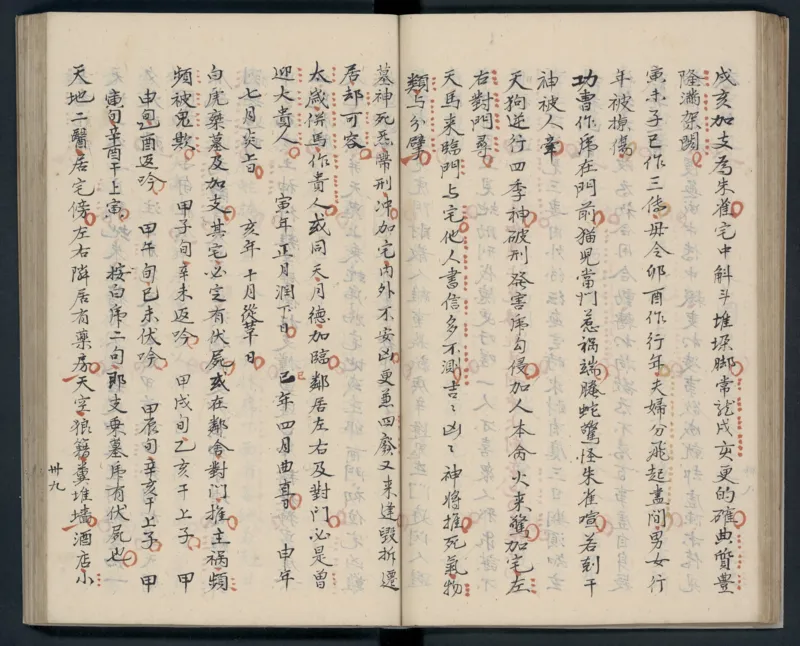 戌亥加支為朱雀宅中斛斗堆垜脚常龍戌亥更的確典質豊
隆滿架閣
寅未子巳作三傳毋令卯酉作行年夫婦分飛起盡間男女行
年被損傷
功曹作席在門前猫児當門惹禍端螣蛇驚怪朱雀喧若到干
神被人牽
天狗逆行四季神破刑癸害席勾侵加人本禽火来驚加宅左
右對門尋
天馬来臨門与宅他人書信多不測吉〻凶〻神將推死氣物
類与分擘
墓神死炁帶刑冲加宅内外不安凶更兼四廢又来逢毀拆遷
居却可容
太歳併馬作貴人或同天月德加臨鄰居左右及對門必是曽
迎大貴人 寅年正月潤下日 巳年四月曲直日 申年
七月炎上日 亥年十月從革日
白虎藥墓及加支其宅必定有伏屍或在鄰舍對門推主禍頻
頻被鬼欺 甲子旬辛未返吟 甲戌旬乙亥干上子 甲
申旬乙酉返吟 甲午旬巳未伏吟 甲辰旬辛亥干上子 甲
寅旬辛酉干上寅 按白席二句耶支乗墓席有伏屍也
天地二醫居宅傍左右隣居有藥房天空狼籍糞堆墻酒店小
卅九